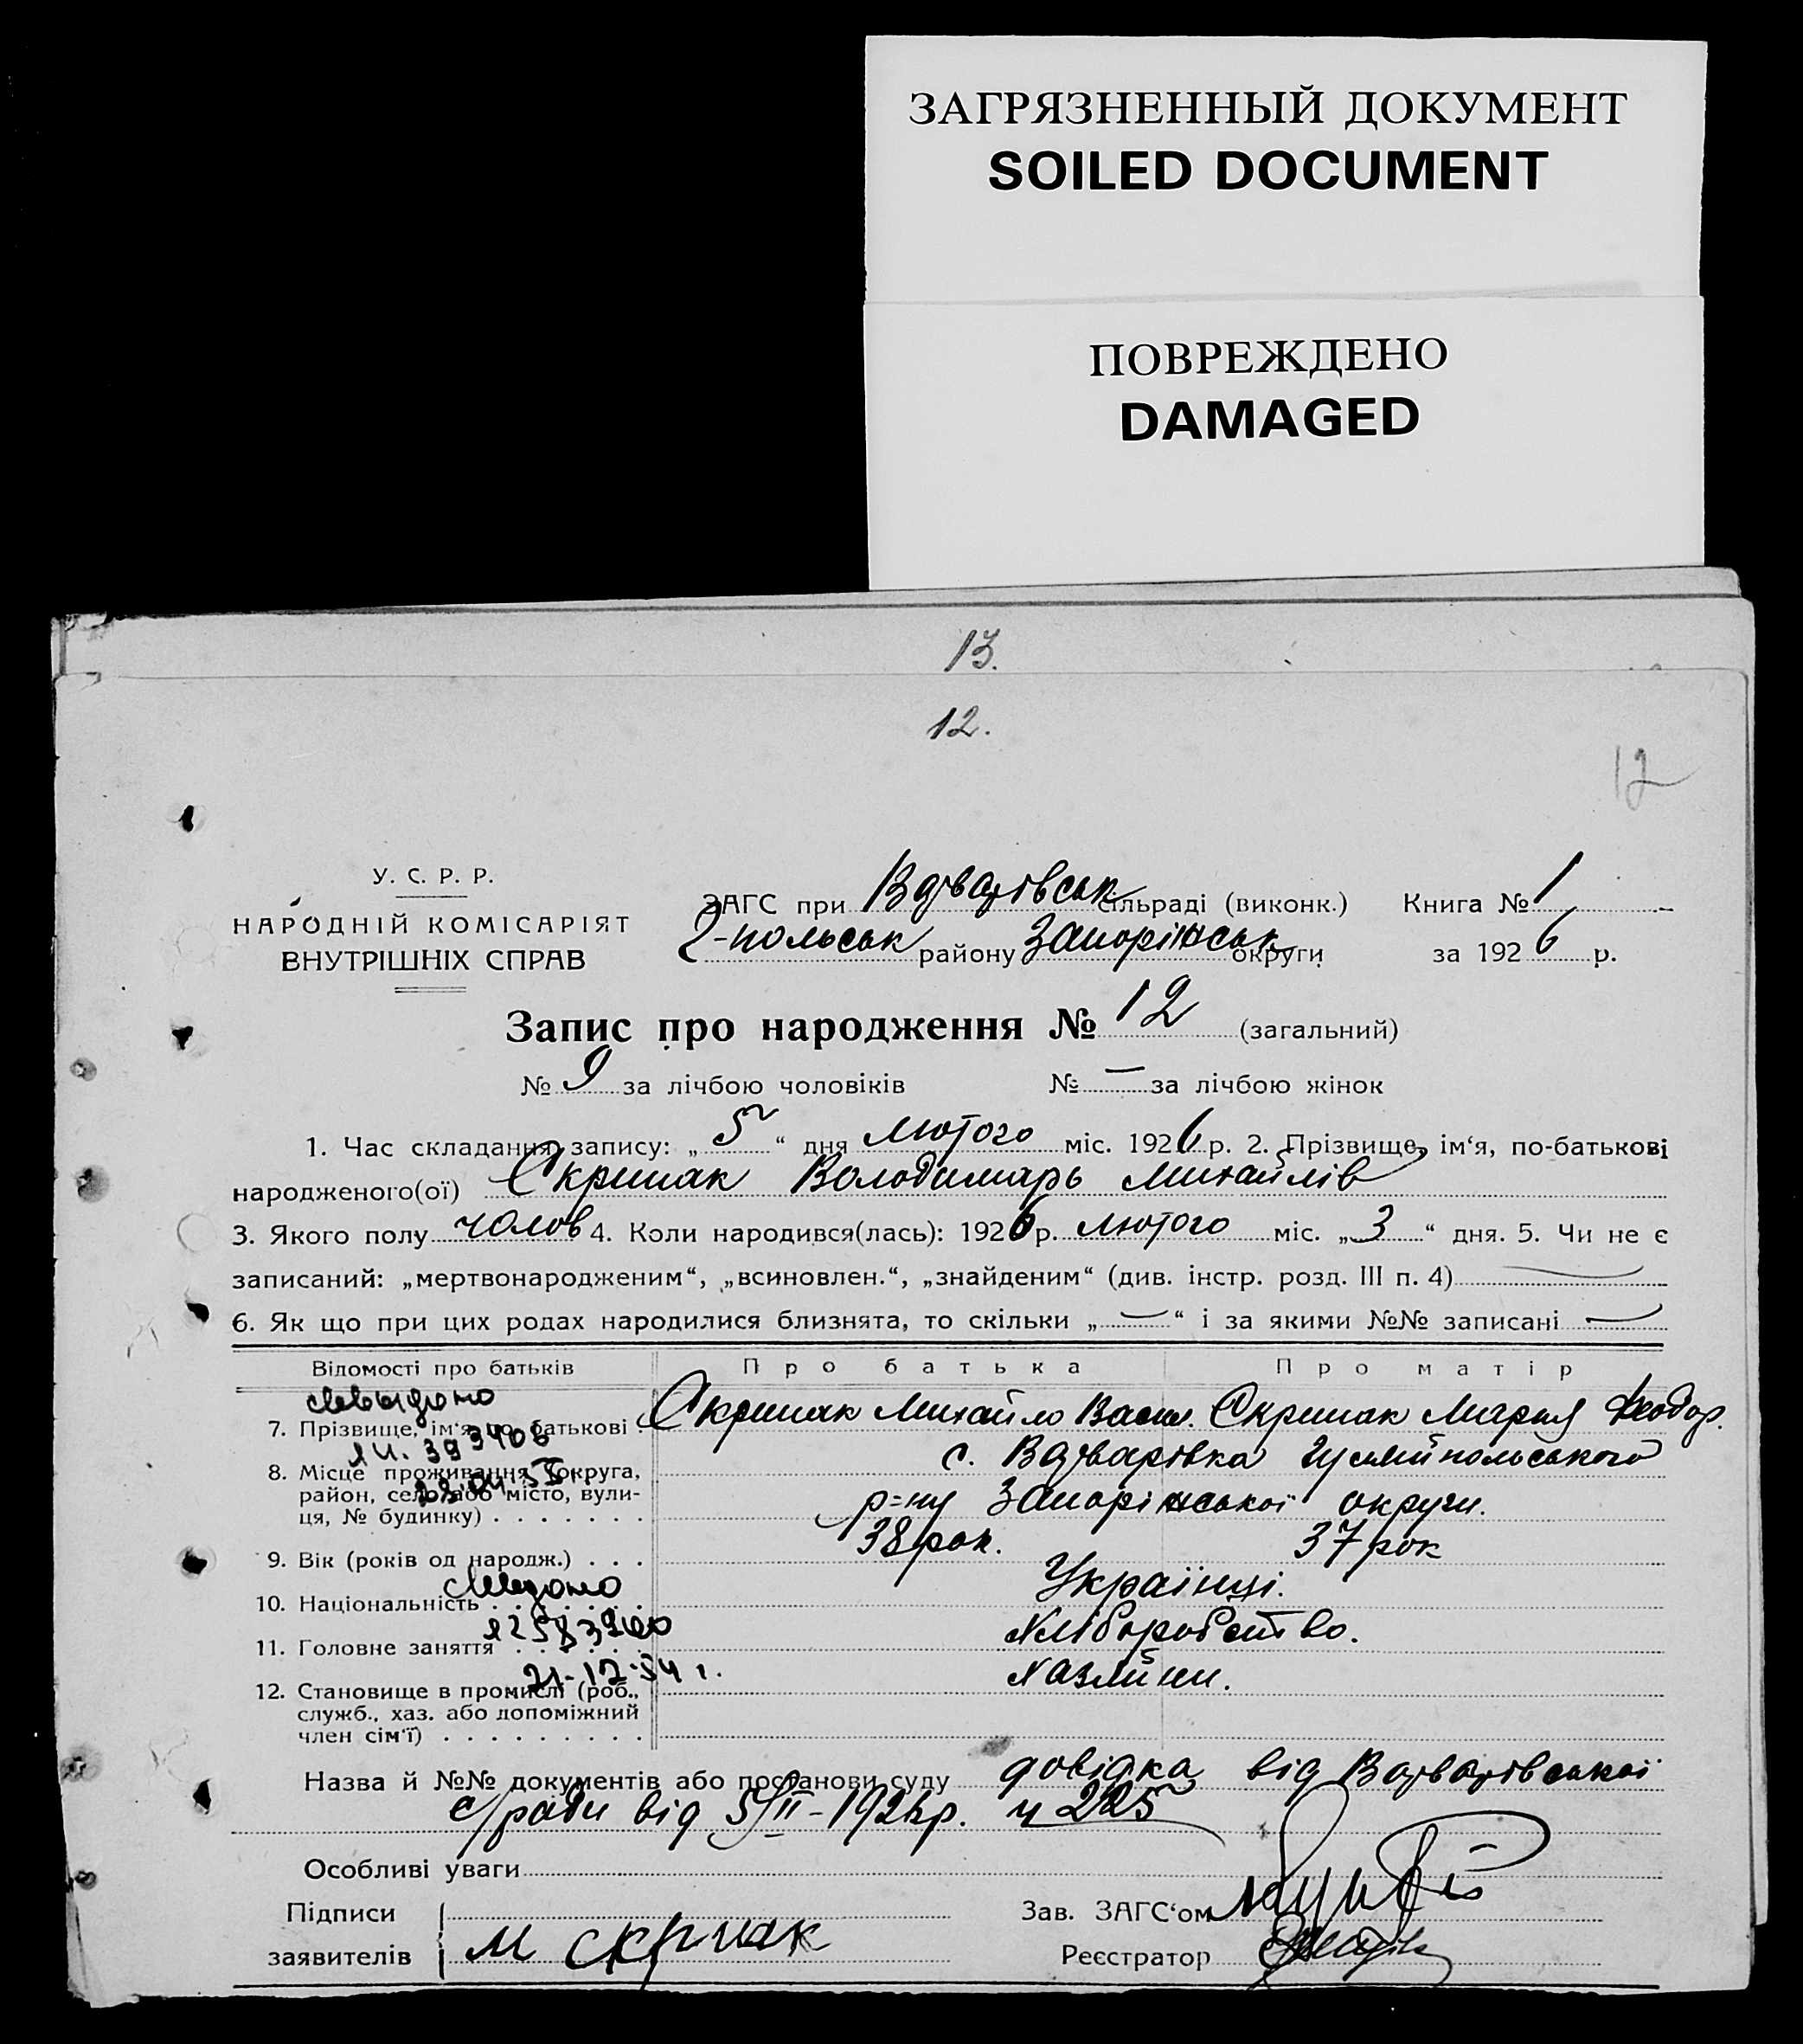 ЗАГРЯЗНЕННЫЙ ДОКУМЕНТ
SOILED DOCUMENT
ПОВРЕЖДЕНО
DAMAGED
13.
12.
12
У. С. Р. Р.
НАРОДНІЙ КОМІСАРІЯТ
ВНУТРІШНІХ СПРАВ
ЗАГС при Варварівськ сільраді (виконк.) Книга № 1
Г-польськ району Запоріжськ округи за 1926 р.
Запис про народження № 12 (загальний)
№ 9 за лічбою чоловіків № — за лічбою жінок
1. Час складання запису: „5“ дня лютого міс. 1926 р. 2. Прізвище, ім‘я, по-батькові
народженого(ої) Скрипак Володимирь Михайлів
3. Якого полу чолов 4. Коли народився(лась): 1926 р. лютого міс. „3“ дня. 5. Чи не є
записаний: „мертвонародженим“, „всиновлен.“, „знайденим“ (див. інстр. розд. III п. 4) —
6. Як що при цих родах народилися близнята, то скільки „—“ і за якими №№ записані —
Відомості про батьків Про батька Про матір
7. Прізвище, ім‘я по-батькові . Скрипак Михайло Васил. Скрипак Мария Феодор.
8. Місце проживання (округа, с. Варварівка Гуляйпольського
район, село або місто, вули- р=ну Запоріжської округи.
ця, № будинку) . . . . . . .
9. Вік (років од народж.) . . . 38 рок. 37 рок
10. Національність . . . . . . Українці.
11. Головне заняття . . . . . Хліборобство.
21-12-54 г.
12. Становище в промислі (роб., Хазяйни.
служб., хаз. або допоміжний
член сім‘ї) . . . . . . . . .
Назва й №№ документів або постанови суду довідка від Варварівської
с/ради від 5/II-1926р. ч 225
Особливі уваги
Підписи Зав. ЗАГС‘ом
заявителів М Скрипак Реєстратор